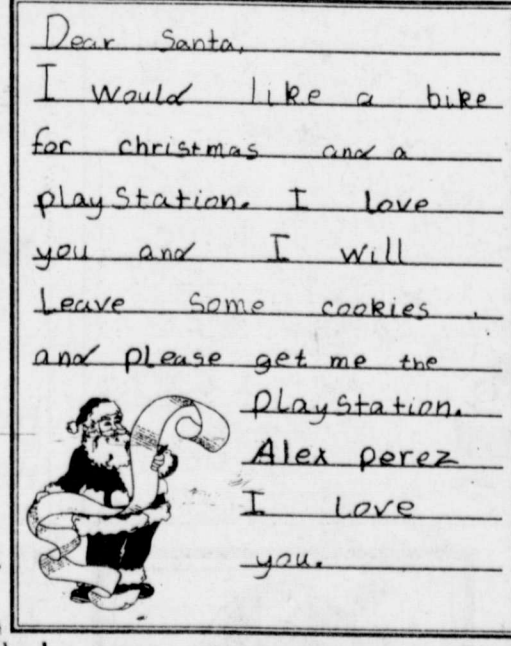 Dear Santa,
I would like a bike
for christmas and a
playstation. I love
you and I will
Leave some cookies.
and please get me the
playstation.
Alex perez
I love
you.